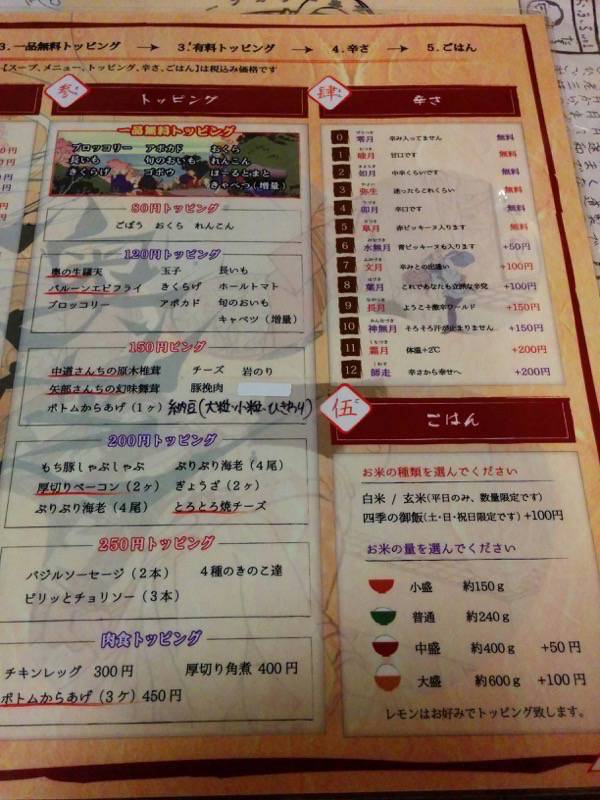 3.一品無料トッピング → 3'.有料トッピング → 4.辛さ → 5.ごはん
【スープ、メニュー、トッピング、辛さ、ごはん】は税込み価格です
参 トッピング
一品無料トッピング
ブロッコリー アボカド おくら
長いも 旬のおいも れんこん
きくらげ ゴボウ ほーるとまと
きゃべつ(増量)
80円トッピング
ごぼう おくら れんこん
120円トッピング
玉子 長いも
バルーンエビフライ きくらげ ホールトマト
ブロッコリー アボカド 旬のおいも
キャベツ(増量)
150円ピング
中道さんちの原木椎茸 チーズ 岩のり
矢部さんちの幻味舞茸 豚挽肉
ボトムからあげ(1ヶ) 納豆(大粒・小粒・ひきわり)
200円トッピング
もち豚しゃぶしゃぶ ぷりぷり海老(4尾)
厚切りベーコン(2ヶ) ぎょうざ(2ヶ)
ぷりぷり海老(4尾) とろとろ焼チーズ
250円トッピング
バジルソーセージ(2本) 4種のきのこ達
ピリッとチョリソー(3本)
肉食トッピング
チキンレッグ 300円 厚切り角煮 400円
ボトムからあげ(3ケ) 450円
肆 辛さ
0 零月 辛み入ってません 無料
1 睦月 甘口です 無料
2 如月 中辛くらいです 無料
3 弥生 迷ったらこれくらい 無料
4 卯月 辛口です 無料
5 皐月 赤ピッキーヌ入ります 無料
6 水無月 青ピッキーヌも入ります +50円
7 文月 辛みとの出逢い +100円
8 葉月 これであなたも立派な辛党 +100円
9 長月 ようこそ激辛ワールド +150円
10 神無月 そろそろ汗が止まりません +150円
11 霜月 体温+2℃ +200円
12 師走 辛さから幸せへ +200円
伍 ごはん
お米の種類を選んでください
白米 / 玄米(平日のみ、数量限定です)
四季の御飯(土・日・祝日限定です)+100円
お米の量を選んでください
小盛 約150g
普通 約240g
中盛 約400g +50円
大盛 約600g +100円
レモンはお好みでトッピング致します。